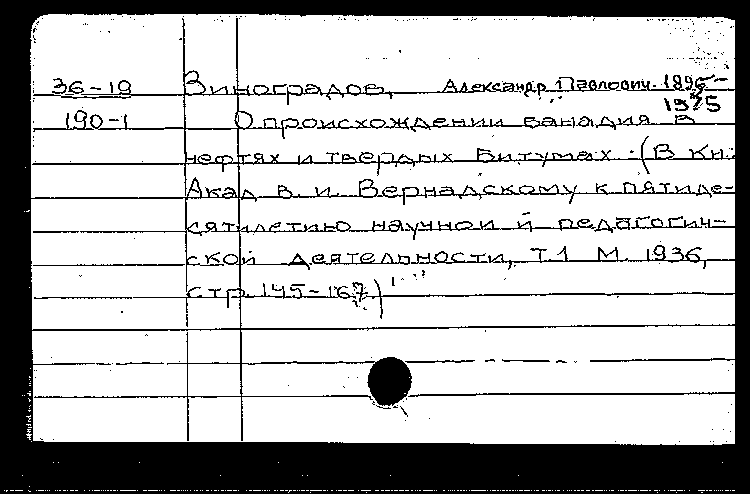 36-19 Виноградов, Александр Павлович. 1895-
1975
190-1 О происхождении ванадия в
нефтях и твердых битумах. (В кн:
Акад В. И. Вернадскому к пятиде-
сятилетию научной и педагогич-
ской деятельности, Т.1 М. 1936,
стр. 145-167)